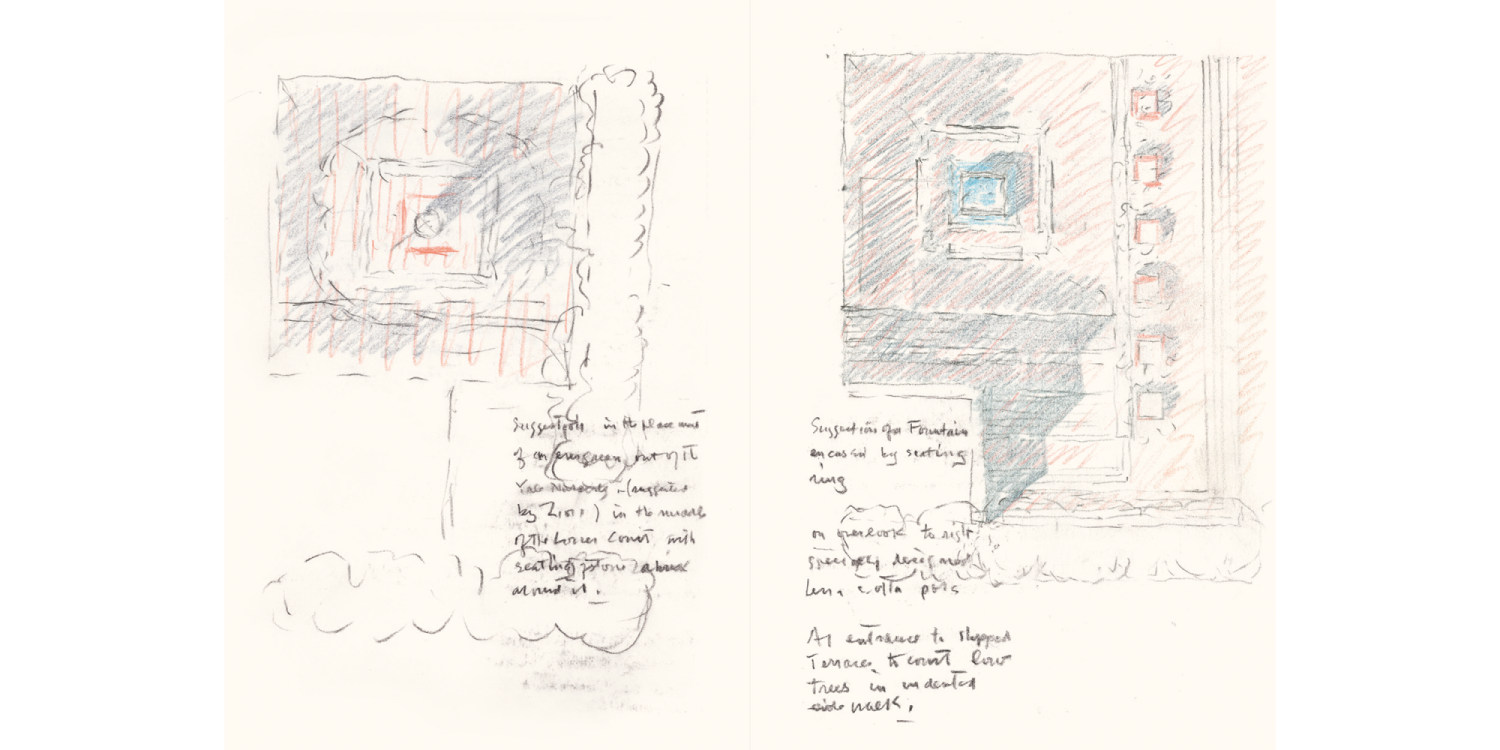 Suggestion in the placement
of an evergreen out of it
by Zion) in the middle
of the Lower Court with
seating stone
around it.
Suggestion of a Fountain
encased by seating
ring
on overlook to right
specially designed
terra cotta pots
At entrance to stepped
Terraces to court low
trees in indented
side walk.